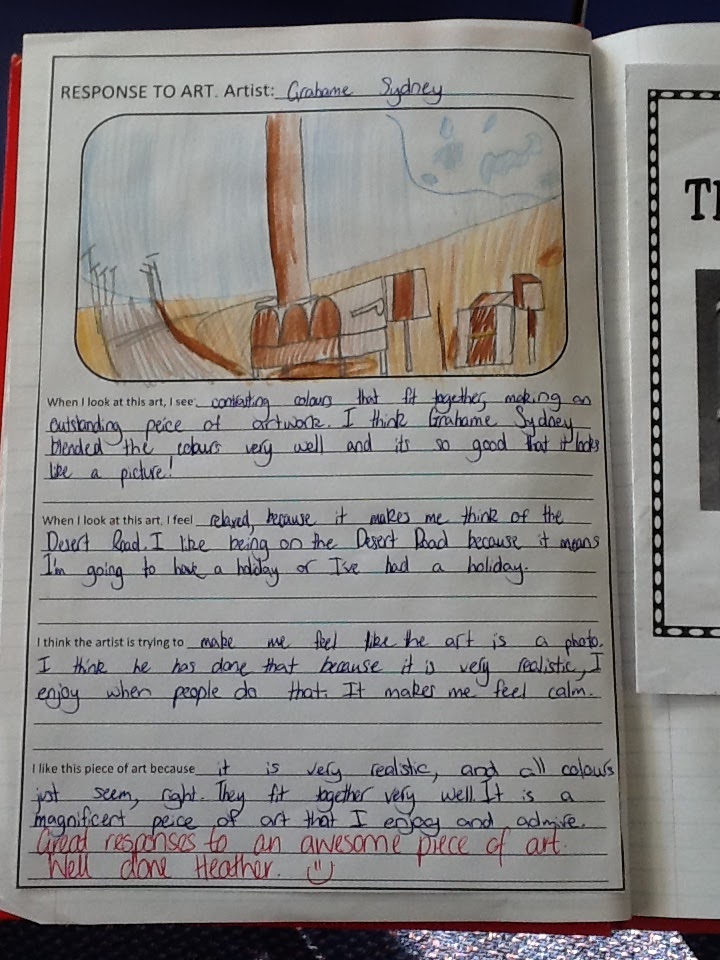 RESPONSE TO ART. Artist: Grahame Sydney
When I look at this art, I see: contrasting colours that fit together, making an
outstanding peice of artwork. I think Grahame Sydney
blended the colours very well and its so good that it looks
like a picture!
When I look at this art, I feel relaxed, because it makes me think of the
Desert Road. I like being on the Desert Road because it means
I'm going to have a holiday or I've had a holiday.
I think the artist is trying to make me feel like the art is a photo.
I think he has done that because it is very realistic, I
enjoy when people do that. It makes me feel calm.
I like this piece of art because it is very realistic, and all colours
just seem, right. They fit together very well. It is a
magnificent peice of art that I enjoy and admire.
Great responses to an awesome piece of art.
Well done Heather.